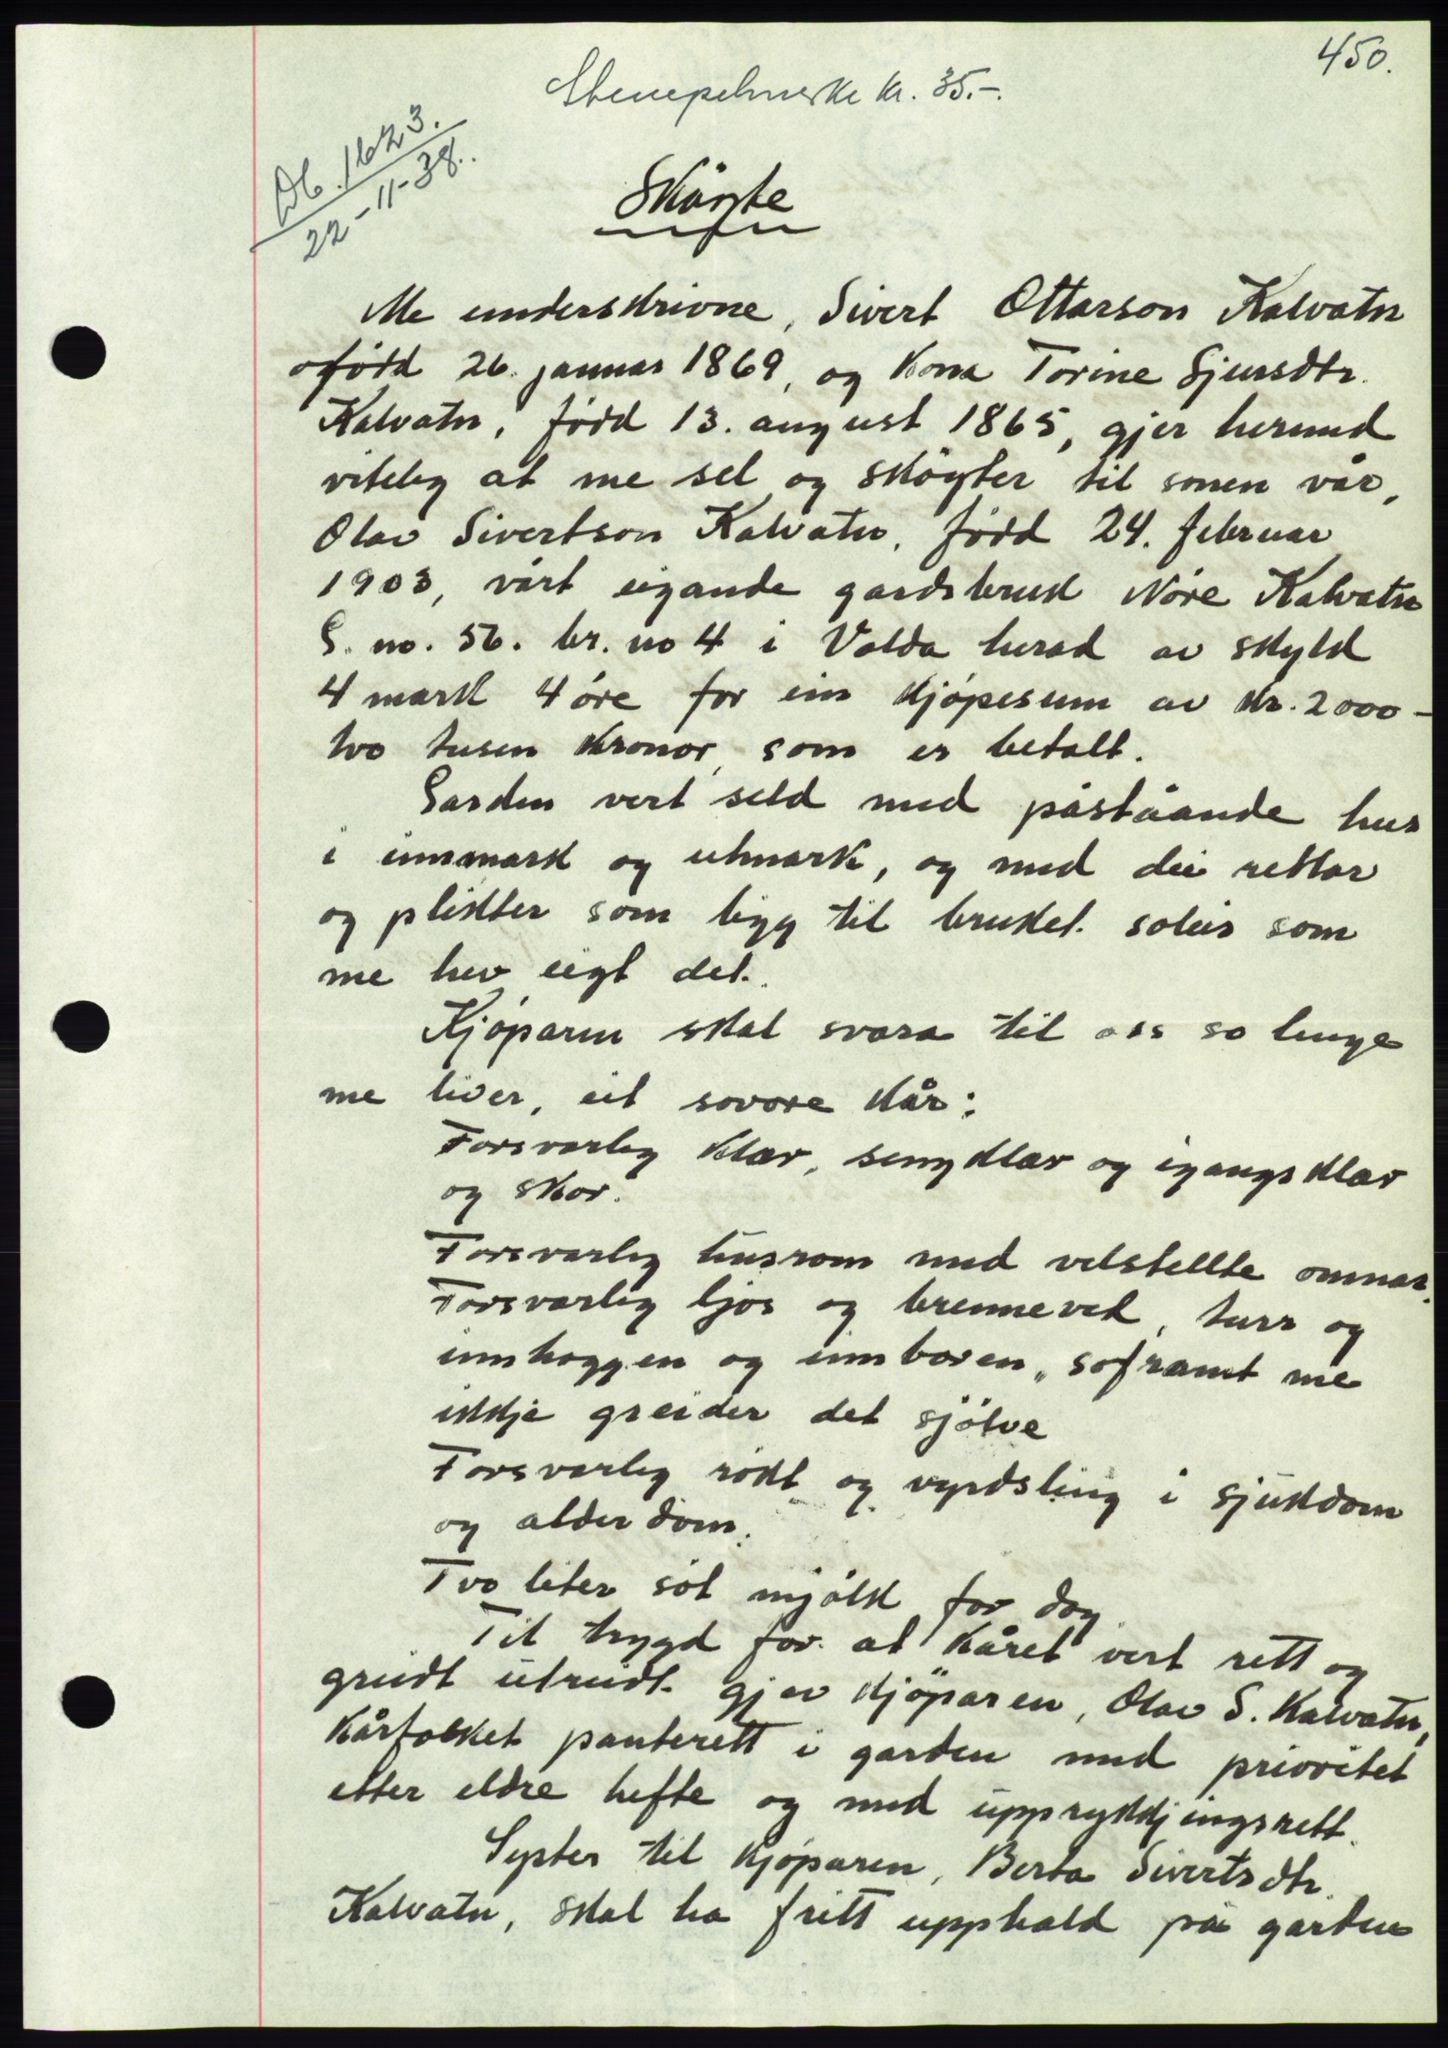 450.
Stempelmerke kr. 35.-.
Db. 1623.
22-11-38.
Sköyte
Me underskrivne, Sivert Ottarson Kalvatn
född 26. januar 1869, og kona Torine Sjursdtr.
Kalvatn, född 13. august 1865, gjer hermed
viteleg at me sel og sköyter til sonen vår,
Olav Sivertson Kalvatn, född 24. februar
1903, vårt eigande gardsbruk Nöre Kalvatn
G. no. 56. br. no 4 i Volda herad av skyld
4 mark 4 öre for ein kjöpesum av kr. 2000-
tvo tusen kronor, som er betalt.
Garden vert seld med påståande hus
i innmark og utmark, og med dei rettar
og plikter som ligg til bruket soleis som
me hev eigt det.
Kjöparen skal svara til oss so lenge
me liver, eit sovore kår:
Forsvarleg klær, sengklær og igangsklær
og skor.
Forsvarleg husrom med velstellte omnar.
Forsvarleg ljos og brenneved, turr og
innhoggen og innboren, soframt me
ikkje greider det sjölve
Forsvarleg rökt og vyrdsling i sjukdom
og alderdom.
Tvo liter söt mjölk for dag.
Til trygd for at kåret vert rett og
greidt utreidt gjev kjöparen, Olav S. Kalvatn,
kårfolket panterett i garden med prioritet
etter eldre hefte og med upprykkjingsrett.
Syster til kjöparen, Berta Sivertsdtr.
Kalvatn, skal ha fritt upphald på garden